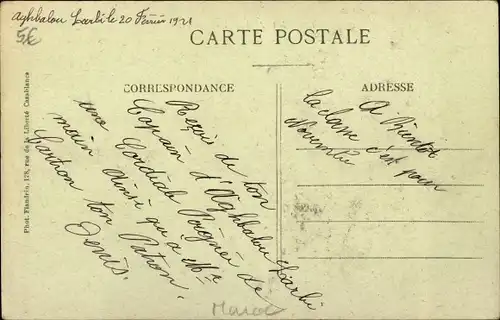 Aghbalou Larbi le 20 Février 1921
5€
CARTE POSTALE
CORRESPONDANCE
ADRESSE
Reçois de ton
Copain d'Aghbalou Larbi
Cordiale Poignée de
main ainsi qu'a Mr
une
Cartron ton Patron.
Denis.
A Bientôt
La classe c'est pour
Novembre
Maroc
Phot. Flandrin, 128, rue de la Liberté Casablanca